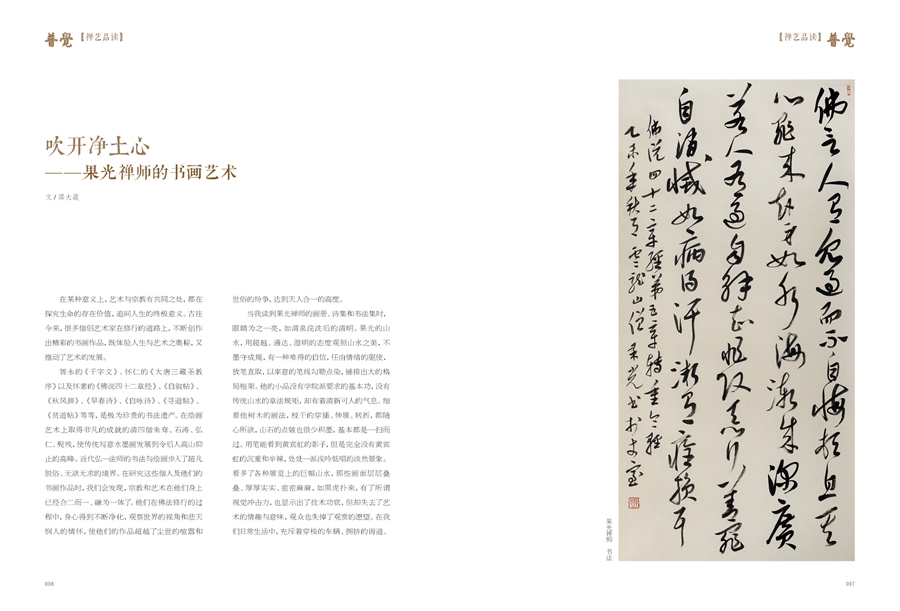 普觉【禅艺品读】
【禅艺品读】普觉
吹开净土心
——果光禅师的书画艺术
文/邵大箴
在某种意义上，艺术与宗教有共同之处，都在
探究生命的存在价值，追问人生的终极意义。古往
今来，很多僧侣艺术家在修行的道路上，不断创作
出精彩的书画作品，既体验人生与艺术之奥秘，又
推动了艺术的发展。
智永的《千字文》、怀仁的《大唐三藏圣教
序》以及怀素的《佛说四十二章经》、《自叙帖》、
《秋风辞》、《早春诗》、《自咏诗》、《寻道帖》、
《贫道帖》等等，是极为珍贵的书法遗产。在绘画
艺术上取得非凡的成就的清四僧朱耷、石涛、弘
仁、髡残，使传统写意水墨画发展到令后人高山仰
止的高峰。近代弘一法师的书法与绘画步入了超凡
脱俗、无欲无求的境界。在研究这些僧人及他们的
书画作品时，我们会发现，宗教和艺术在他们身上
已经合二而一、融为一体了。他们在佛法修行的过
程中，身心得到不断净化，观察世界的视角和悲天
悯人的情怀，使他们的作品超越了尘世的喧嚣和
世俗的纷争，达到天人合一的高度。
当我读到果光禅师的画册、诗集和书法集时，
眼睛为之一亮，如清泉浣洗后的清明。果光的山
水，用超越、通达、澄明的态度观照山水之美，不
墨守成规，有一种难得的自信，任由情绪的驱使，
放笔直取，以率意的笔线勾勒点染，铺排出大的格
局框架。他的小品没有学院派要求的基本功，没有
传统山水的章法规矩，却有着清新可人的气息。细
看他树木的画法，枝干的穿插、伸展、转折，都随
心所欲，山石的点皴也很少积墨，基本都是一扫而
过。用笔能看到黄宾虹的影子，但是完全没有黄宾
虹的沉重和辛辣，处处一派浅吟低唱的淡然景象。
看多了各种展览上的巨幅山水，那些画面层层叠
叠、厚厚实实、密密麻麻，如黑虎扑来，有了所谓
视觉冲击力，也显示出了技术功底，但却失去了艺
术的情趣与意味，观众也失掉了观赏的愿望。在我
们日常生活中，充斥着穿梭的车辆、拥挤的街道、
佛言人有众过而不自悔顿息其
心罪来赴身如水归海渐成深广
若人有过自解知非改恶行善罪
自消灭如病得汗渐有痊损耳
佛说四十二章经第五章转重令轻
乙未年秋月云龙山僧果光书于方室
果光禅师 书法
036
037